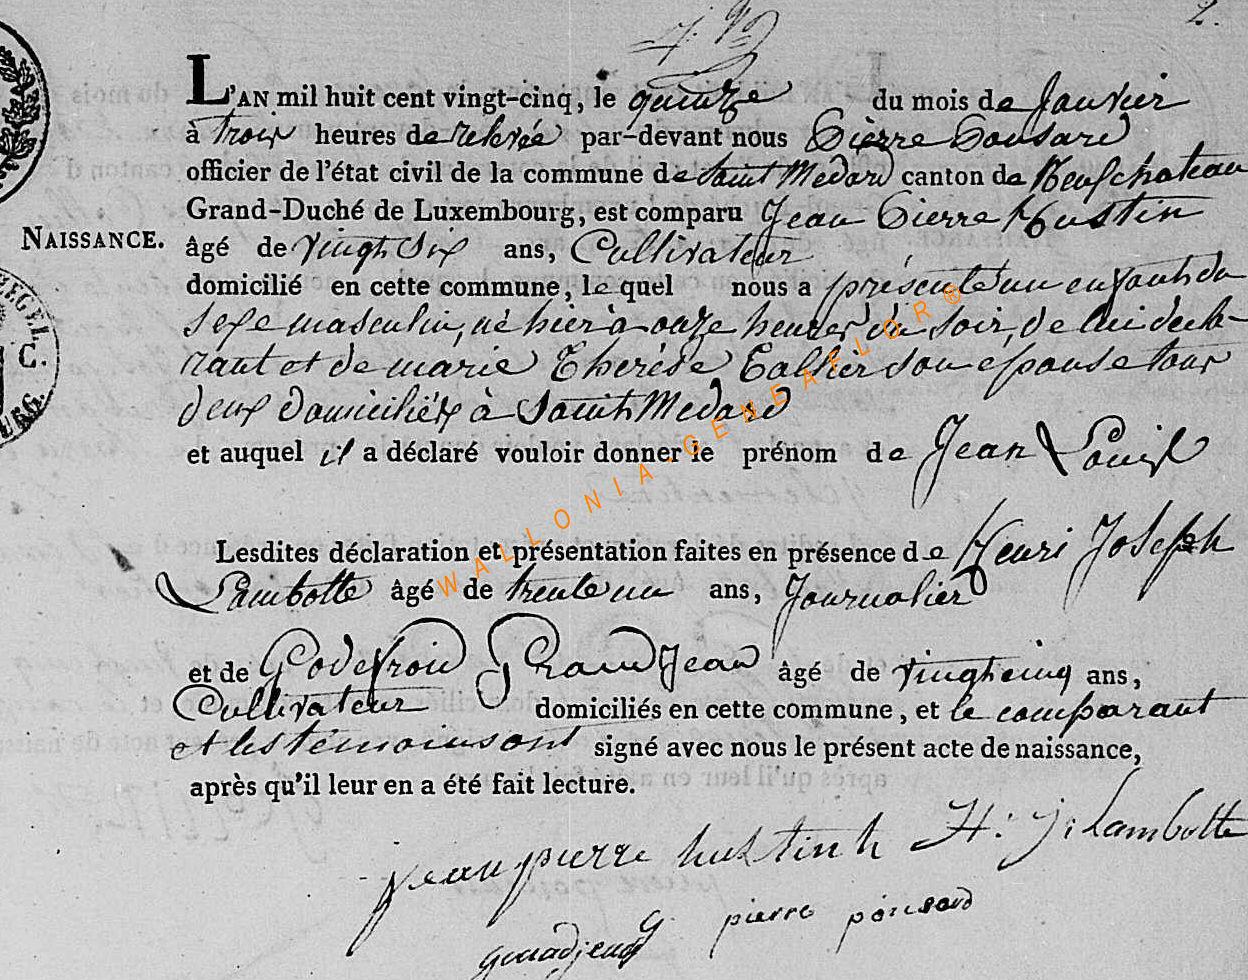 2.
L'AN mil huit cent vingt-cinq, le quinze du mois de Janvier
à trois heures de relevée par-devant nous Pierre Ponsard
officier de l'état civil de la commune de Saint Medard canton de Neufchateau
Grand-Duché de Luxembourg, est comparu Jean Pierre Hustin
NAISSANCE. âgé de vingt Six ans, Cultivateur
domicilié en cette commune, le quel nous a présenté un enfant du
sexe masculin, né hier à onze heures du soir, de lui décla-
rant et de marie Therèse son épouse tous
deux domiciliés à Saint Medard
et auquel il a déclaré vouloir donner le prénom de Jean Louis
Lesdites déclaration et présentation faites en présence de Henri Joseph
Lambotte âgé de trente un ans, Journalier
et de Godefroid Grand Jean âgé de vingt cinq ans,
Cultivateur domiciliés en cette commune, et le comparant
et les témoins ont signé avec nous le présent acte de naissance,
après qu'il leur en a été fait lecture.
jean pierre hustin h H: j: Lambotte
g grandjean pierre ponsard
WALLONIA-GENEAFLOR®
REGEL
C.
URG.